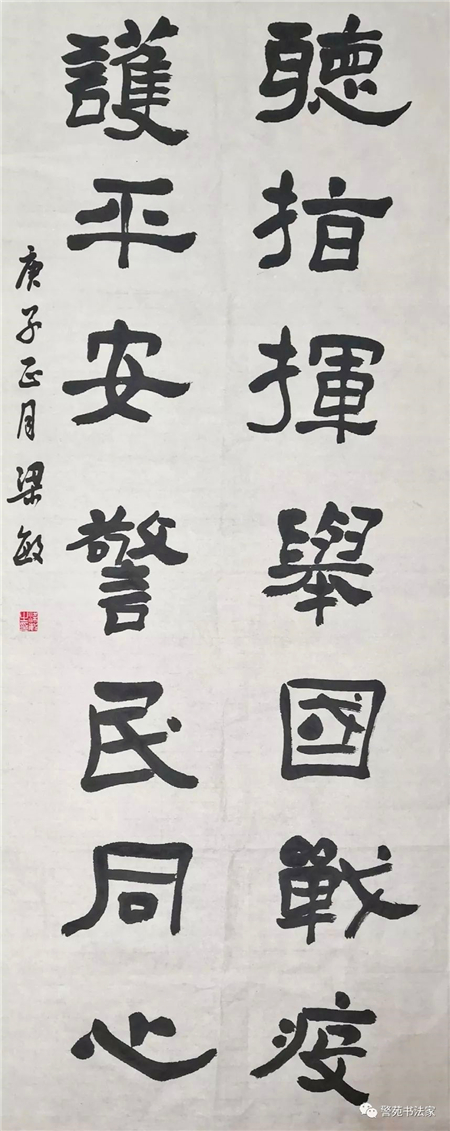 聽指揮舉國戰疫
護平安警民同心
庚子正月梁敏
警苑书法家